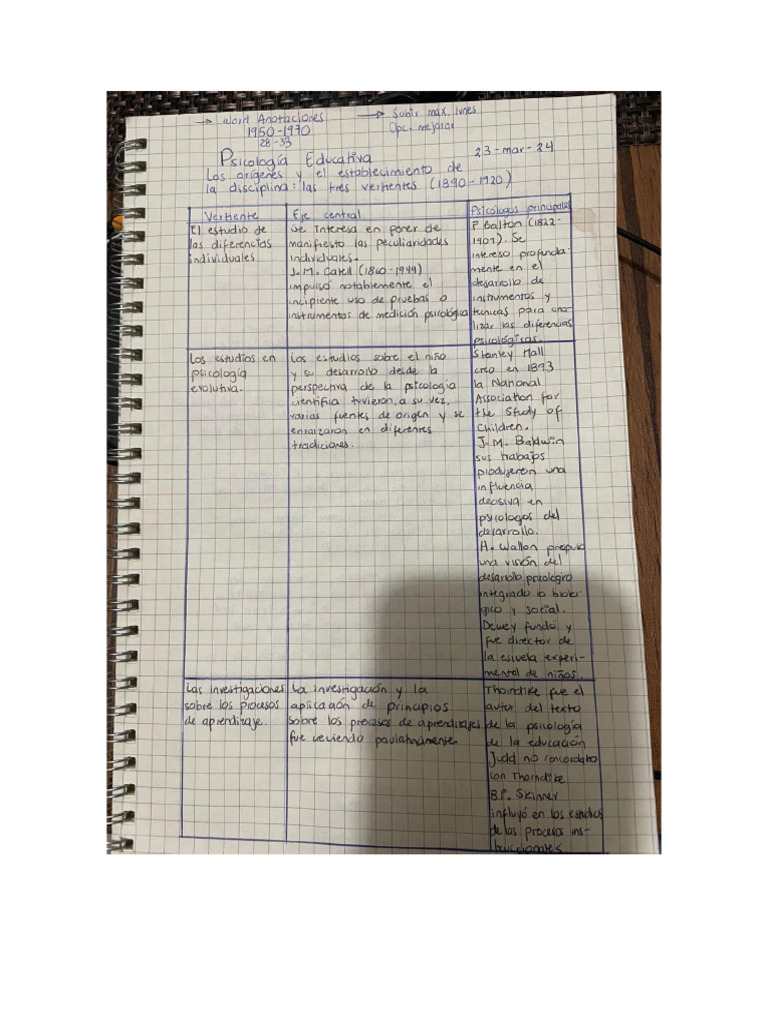 → Word Anotaciones
→ Subir max. lunes
1950-1970
Opc. mejorar
28-33
23-mar-24
Psicología Educativa
Los orígenes y el establecimiento de
la disciplina: las tres vertientes (1890-1920)
Vertiente
Eje central
Psicólogos principales
El estudio de
las diferencias
individuales
Se interesa en poner de
manifiesto las peculiaridades
individuales.
J.M. Catell (1860-1944)
impulsó notablemente el
incipiente uso de pruebas o
instrumentos de medición psicológica
F Galton (1822-
1909). Se
intereso profunda-
mente en el
desarrollo de
instrumentos y
tecnicas para ana-
lizar las diferencias
psicológicas.
Los estudios en
psicología
evolutiva.
Los estudios sobre el niño
y su desarrollo desde la
perspectiva de la psicologia
cientifica tuvieron, a su vez,
varias fuentes de origen y se
enraizaron en diferentes
tradiciones.
Stanley Hall
creo en 1893
la National
Association for
the Study of
Children.
J.M. Baldwin
sus trabajos
produjeron una
influencia
decisiva en
psicologos del
desarrollo.
H. Wallon propuso
una visión del
desarollo psicologico
integrado lo bioló-
gico y social.
Dewey fundó y
fue director de
la escuela experi-
mental de niños.
Las investigaciones
sobre los procesos
de aprendizaje.
La investigación y la
aplicación de principios
sobre los procesos de aprendizajes
fue creciendo paulatinamente.
Thorndike fue el
autor del texto
de la psicología
de la educación
Judd no concordaba
con Thorndike
B.F. Skinner
influyó en los estudios
de los procesos ins-
truccionales